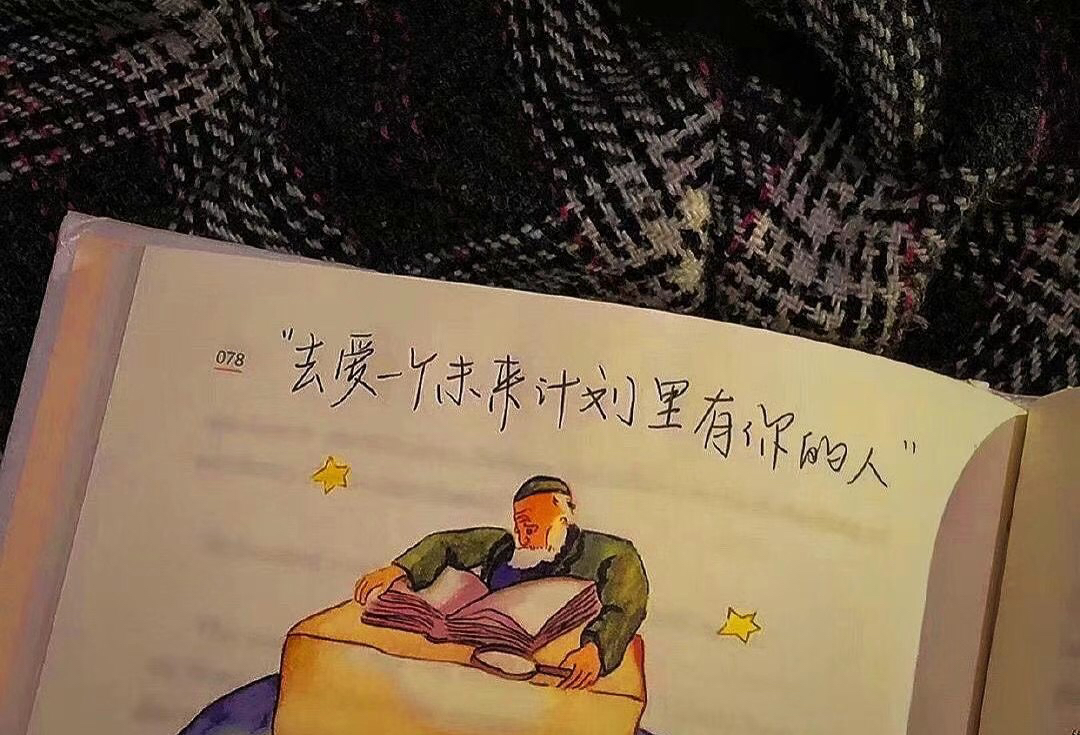 078
"去爱一个未来计划里有你的人"